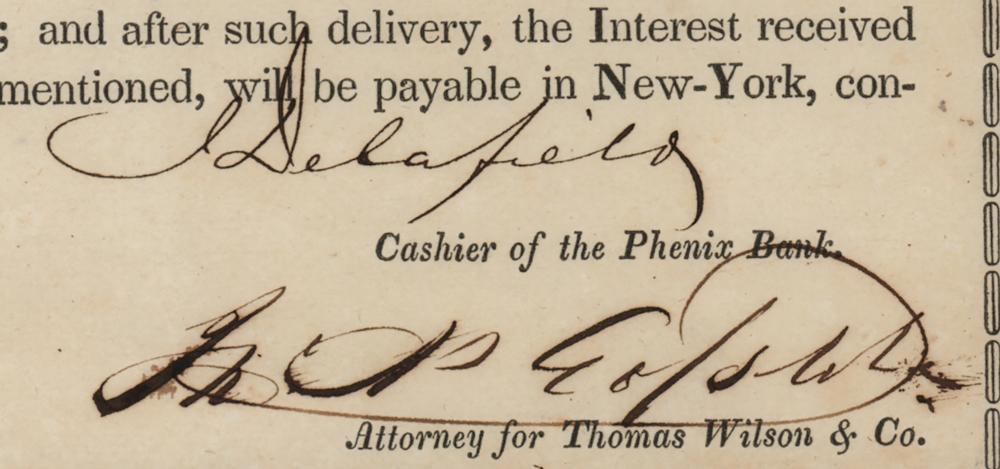 ; and after such delivery, the Interest received
mentioned, will be payable in New-York, con-
J Delafield
Cashier of the Phenix Bank.
Attorney for Thomas Wilson & Co.